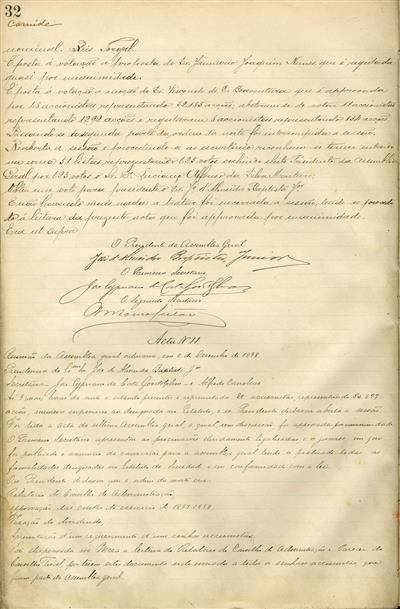 32
Carnide
nominal. Reis Torgal.
É posta á votação a proposta do Sr. Januario Joaquim Nunes que é regeitada
quasi por unanimidade.
É posta á votação a moção do Sr. Visconde de S. Boaventura que é approvada
por 48 accionistas representando acções, abstem-se de votar 11 accionistas
representando 1299 acções e regeitaram 8 accionistas representando 154 acções.
Passando-se á segunda parte da ordem da noite foi interrompida a sessão.
Reaberta a sessão e procedendo-se ao escrutinio reconhece-se terem entrado
na urna 51 listas representando 695 votos sahindo eleito Presidente da Assemblea
Geral por 693 votos o Sr. Dr. Luciano Affonso da Silva Monteiro.
Obteve um voto para presidente o Sr. J. d'Almeida Baptista Jor
E não havendo mais nada a tratar foi encerrada a sessão, tendo-se procedi
do á leitura da presente acta que foi approvada por unanimidade.
Era ut supra
O Presidente da Assemblea Geral
José d'Almeida Baptista Junior
O Primeiro Secretario
José Cypriano da Costa Goodolphim
O Segundo Secretario
Acta Nº 11
Reunião da Assemblea geral ordinaria, em 2 de Dezembro de 1898
Presidencia do José de Almeida Baptista Jor
Secretarios José Cypriano da Costa Goodolphim e Alfredo
Ás 9 horas da noite e estando presentes e representados accionistas representando
acções, numero superior ao designado no Estatuto, o sr. Presidente declarou aberta a sessão.
Foi lida a acta da ultima Assemblea geral, a qual sem discussão, foi approvada por unanimidade.
O Primeiro Secretario apresentou as procurações devidamente legalisadas e o jornaes em que
foi publicado o annuncio da convocação para a assemblea geral tendo-se praticado todas as
formalidades designadas no Estatuto da Sociedade, e em conformidade com a lei.
O Sr. Presidente declarou que a ordem da noite era:
Relatorio do Conselho de Administração
Approvação das contas do exercicio de 1897-1898,
Fixação do dividendo
Apresentação d'um requerimento d'um senhor accionista;
Foi dispensada na Mesa a leitura do Relatorio do Conselho de Administração e Parecer do
Conselho Fiscal por terem estes documentos sido enviados a todos os senhores accionistas, que
fazem parte da Assemblea Geral.